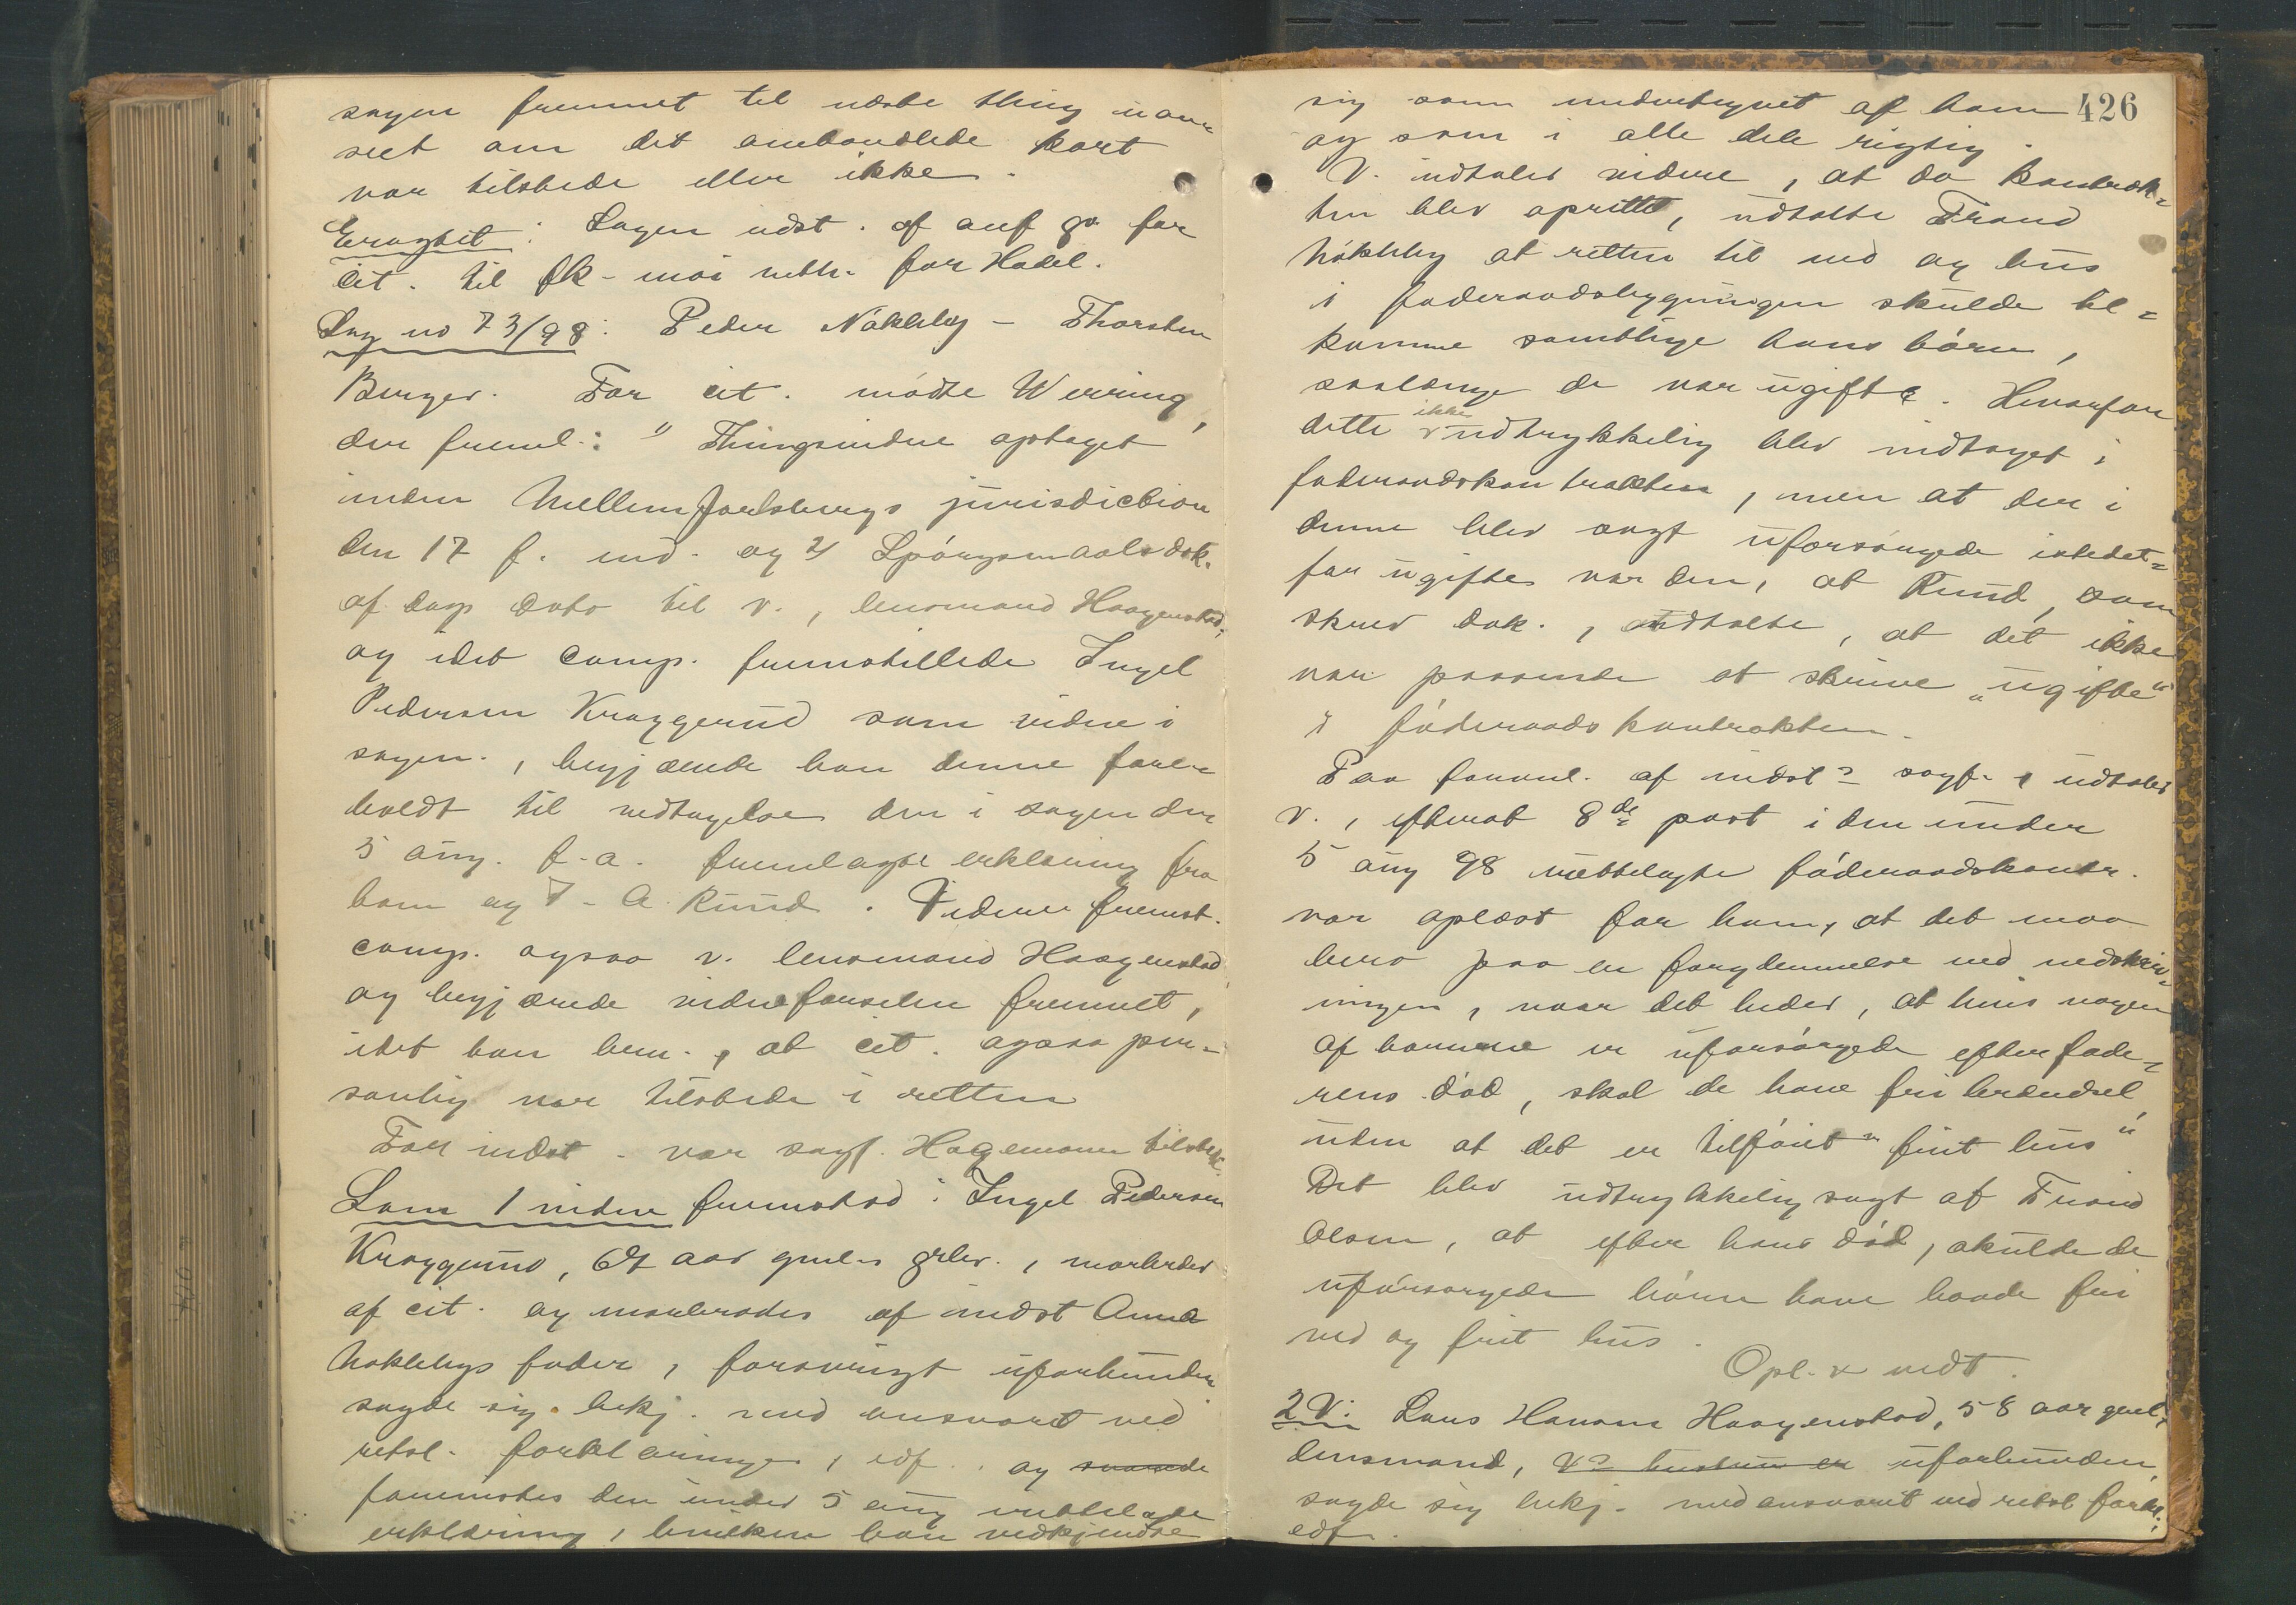 sagen fremmet til næste thing uan-
seet om det omhandlede kart
var tilstede eller ikke.
Eragtet: Sagen udst. af anf gr for
cit. til øk-mæs retth. for Hadel.
Sag no 73/98: Peder Nökleby - Thorsten
Berger. For cit. mødte Werring,
der freml.: " Thingsvidne optaget
inden Mellem Jarlsbergs jurisdiction
den 17 f. md. og 2) Spörgsmaalsdok.
af dags dato til v., lensmand Haagenstad,
og idet comp. fremstillede Ingel
Pedersen Kraggerud som vidne i
sagen, begjærede han denne fore-
holdt til vedtagelse den i sagen den
5 aug. f.a. fremlagte erklæring fra
ham og T. A. Ruud. Videre fremst.
comp. ogsaa v. lensmand Haagenstad
og begjærede vidneførselen fremmet,
idet han bem., at cit. ogsaa per-
sonlig var tilstede i retten
For indst. var sagf. Hagemann tilstede.
Som 1 vidne fremstod: Ingel Pedersen
Kraggerud, 67 aar gml. grbr., morbroder
af cit. og morbroder af indst Anna
Noklebys fader, forøvrigt uforbunden
sagde sig bekj. med ansvaret ved
retsl. forklaringer, edf. og svarede
foreviistes den under 5 aug rettelagte
erklæring, hvilken han vedkjendte
426
sig som undertegnet af ham
og som i alle dele rigtig.
V. udtaler videre, at da kontrak-
ten blev oprettet, udtalte Trond
Nökleby at retten til ved og hus
i föderaadsbygningen skulde til-
komme samtlige hans börn,
saalænge de var ugifte. Hvorfor
dette ikke udtrykkelig blev indtaget i
föderaadskontrakten, men at der i
denne blev sagt uforsørgede istedet-
for ugifte var den, at Ruud, som
skrev dok., udtalte, at det ikke
var passende at skrive "ugifte"
i föderaadskontrakten.
Paa foranl. af indst s sagf. udtaler
v., efterat 8de post i den under
5 aug 98 rettelagte föderaadskontr.
var oplæst for ham, at det maa
bero paa en forglemmelse ved nedskriv-
ningen, naar det heder, at hvis nogen
af børnene er uforsörgede efter fade-
rens död, skal de have fri brændsel,
uden at det er tilföiet "frit hus"
Det blev udtrykkelig sagt af Trond
Olsen, at efter hans död, skulde de
uforsørgede börn have baade fri
ved og frit hus.
Opl. & vedt.
2 V: Lars Hansen Haagenstad, 58 aar gml.
lensmand, Vs hustru er uforbunden,
sagde sig bekj. med ansvaret ved retsl forkl.,
edf.